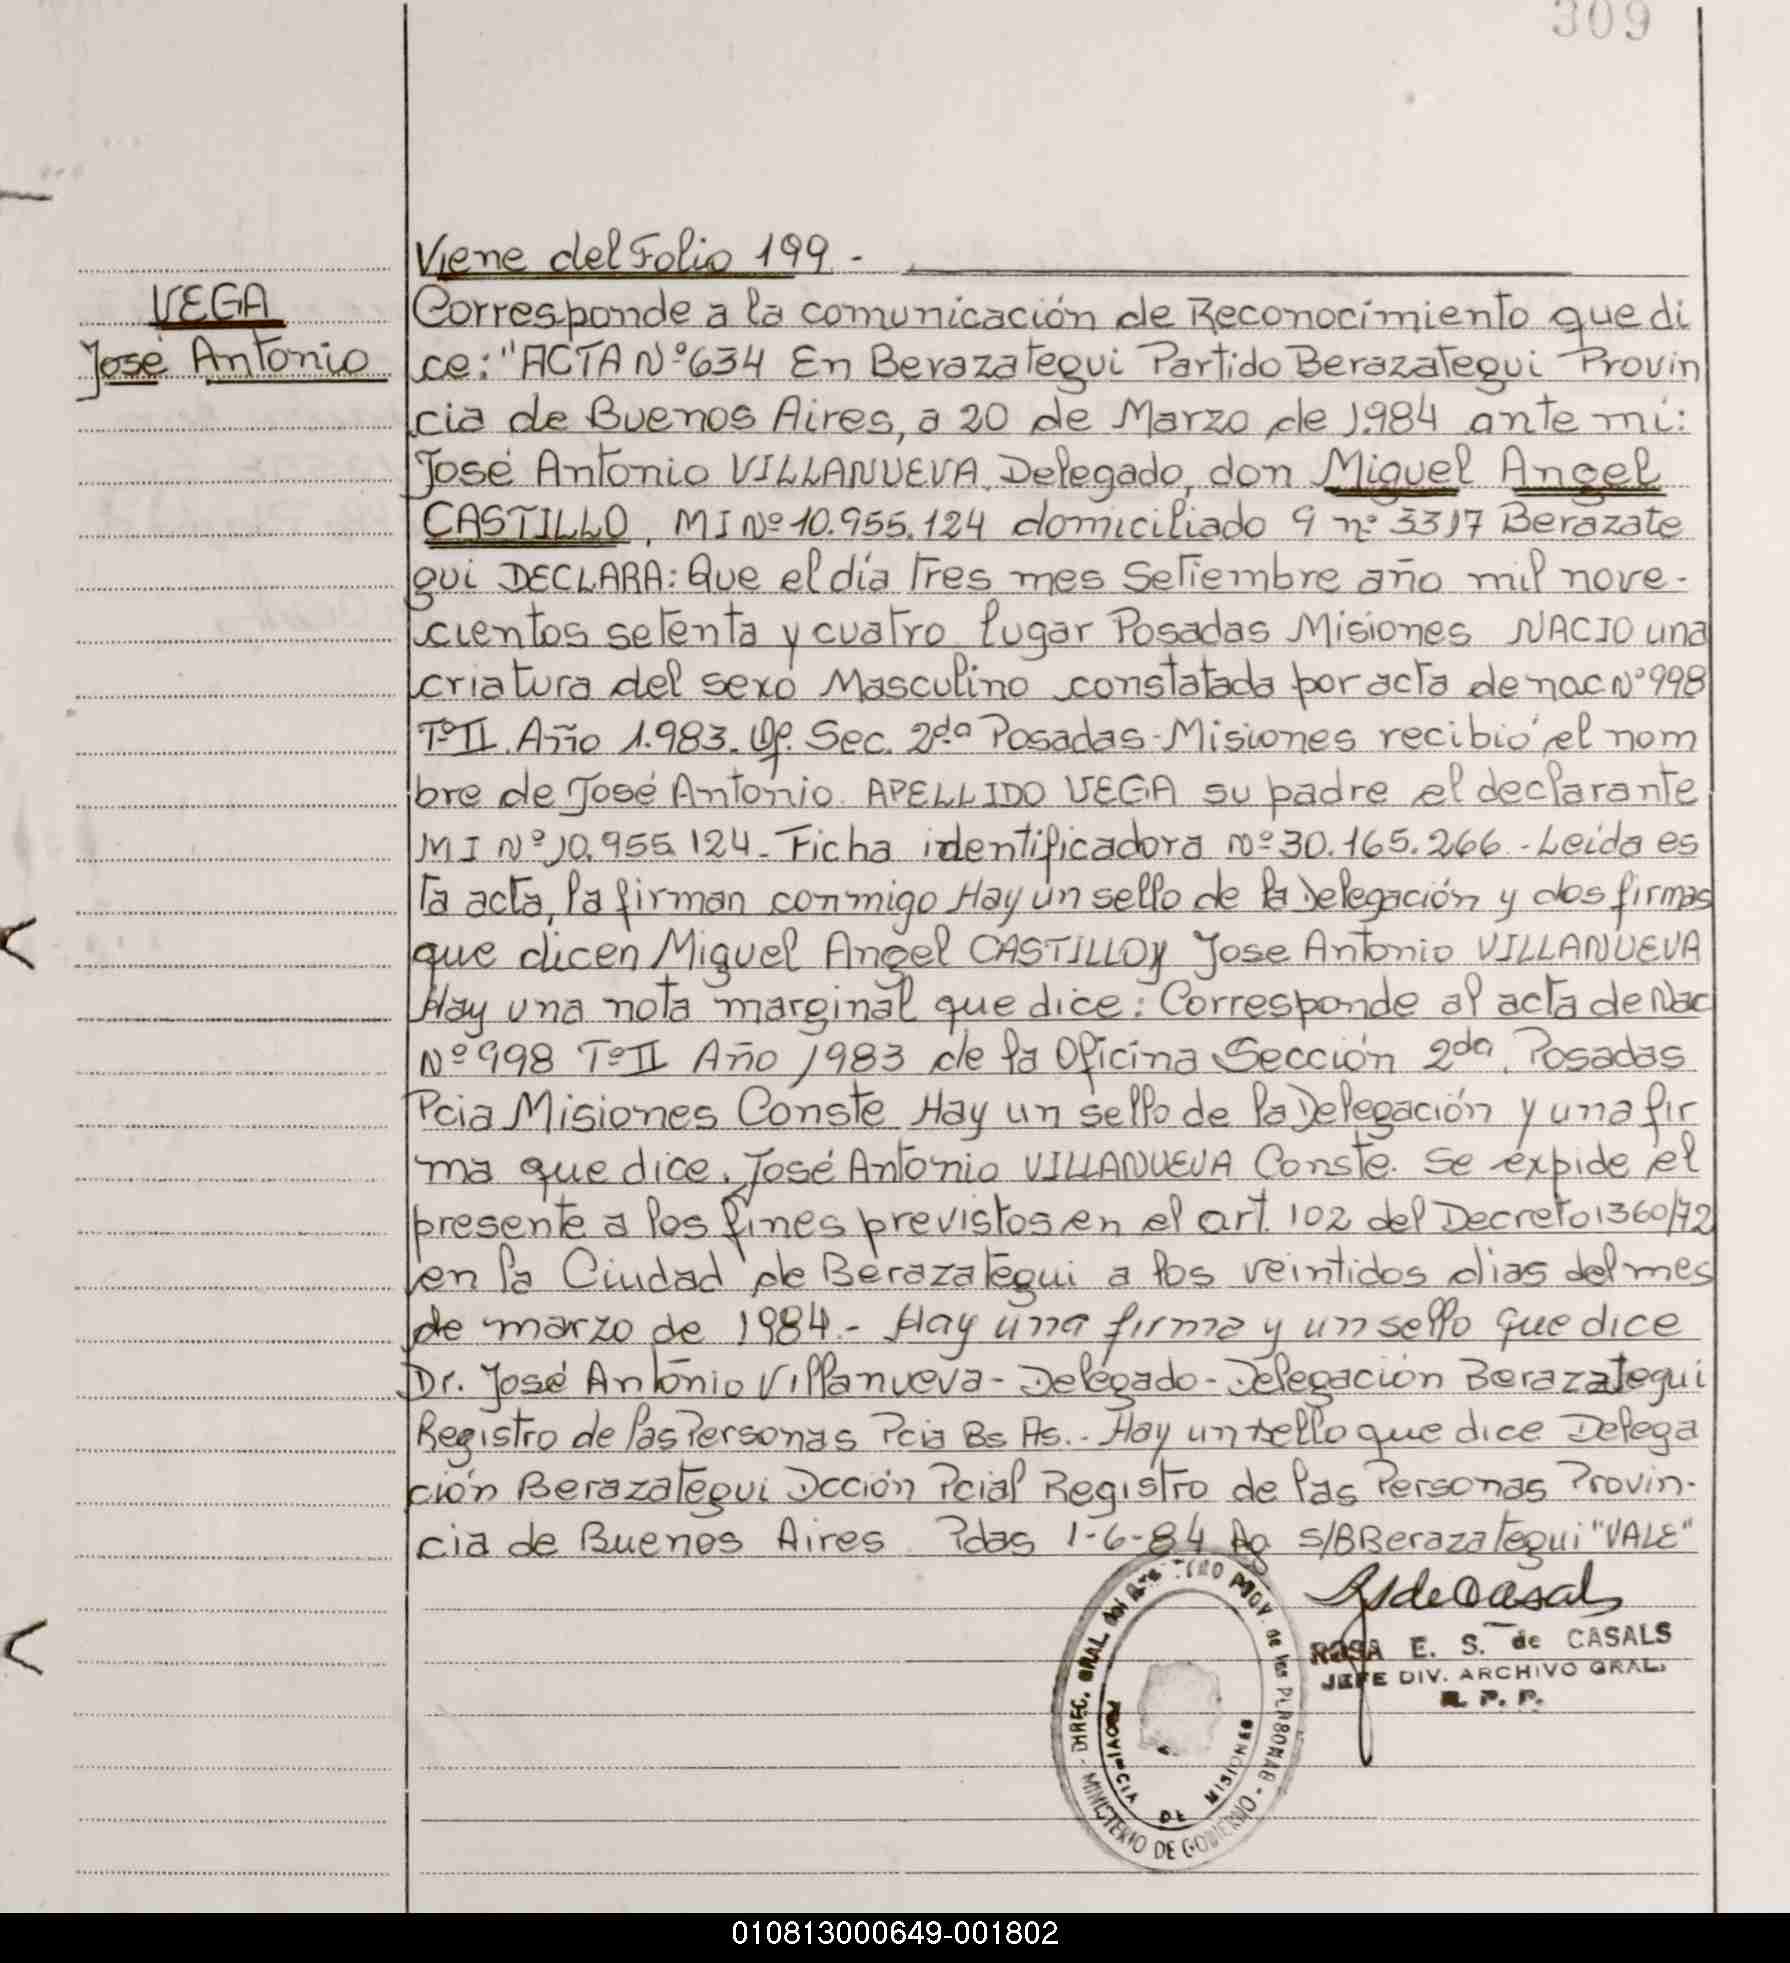 309
Viene del Folio 199 -
VEGA
José Antonio
Corresponde a la comunicación de Reconocimiento que di
ce: "ACTA Nº 634 En Berazategui Partido Berazategui Provin
cia de Buenos Aires, a 20 de Marzo de 1.984 ante mi:
José Antonio VILLANUEVA, Delegado, don Miguel Angel
CASTILLO, M I Nº 10.955.124 domiciliado 9 nº 3317 Berazate
gui DECLARA: Que el día tres mes Setiembre año mil nove-
cientos setenta y cuatro lugar Posadas Misiones NACIO una
criatura del sexo Masculino constatada por acta de nac Nº 998
Tº II. Año 1.983. Of. Sec. 2da Posadas - Misiones recibió el nom
bre de José Antonio. APELLIDO VEGA su padre el declarante
M I Nº 10.955.124 - Ficha identificadora nº 30.165.266 - Leída es
ta acta, la firman conmigo Hay un sello de la Delegación y dos firmas
que dicen Miguel Angel CASTILLO y Jose Antonio VILLANUEVA
Hay una nota marginal que dice: Corresponde al acta de Nac
Nº 998 Tº II Año 1983 de la Oficina Sección 2da. Posadas
Pcia Misiones Conste Hay un sello de la Delegación y una fir
ma que dice. José Antonio VILLANUEVA Conste. Se expide el
presente a los fines previstos en el art. 102 del Decreto 1360/72
en la Ciudad de Berazategui a los veintidos dias del mes
de marzo de 1984.- Hay una firma y un sello que dice
Dr. José Antonio Villanueva - Delegado - Delegación Berazategui
Registro de las Personas Pcia Bs As.- Hay un sello que dice Delega
ción Berazategui Dcción Pcial Registro de las Personas Provin-
cia de Buenos Aires. Pdas 1-6-84 Ag s/B Berazategui "VALE"
RSdeCasals
ROSA E. S. de CASALS
JEFE DIV. ARCHIVO GRAL.
R. P. P.
DIREC. GRAL del PROV. de las PERSONAS - MINISTERIO DE GOBIERNO -
PROVINCIA DE MISIONES
010813000649-001802